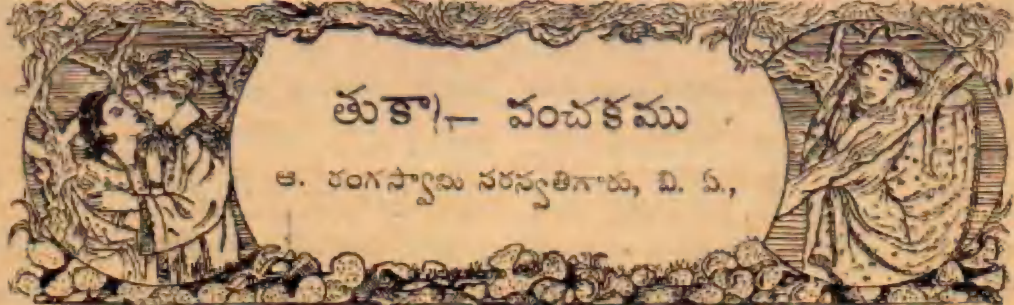 తుకా!— పంచకము
ఆ. రంగస్వామి సరస్వతిగారు, బి. ఏ.,